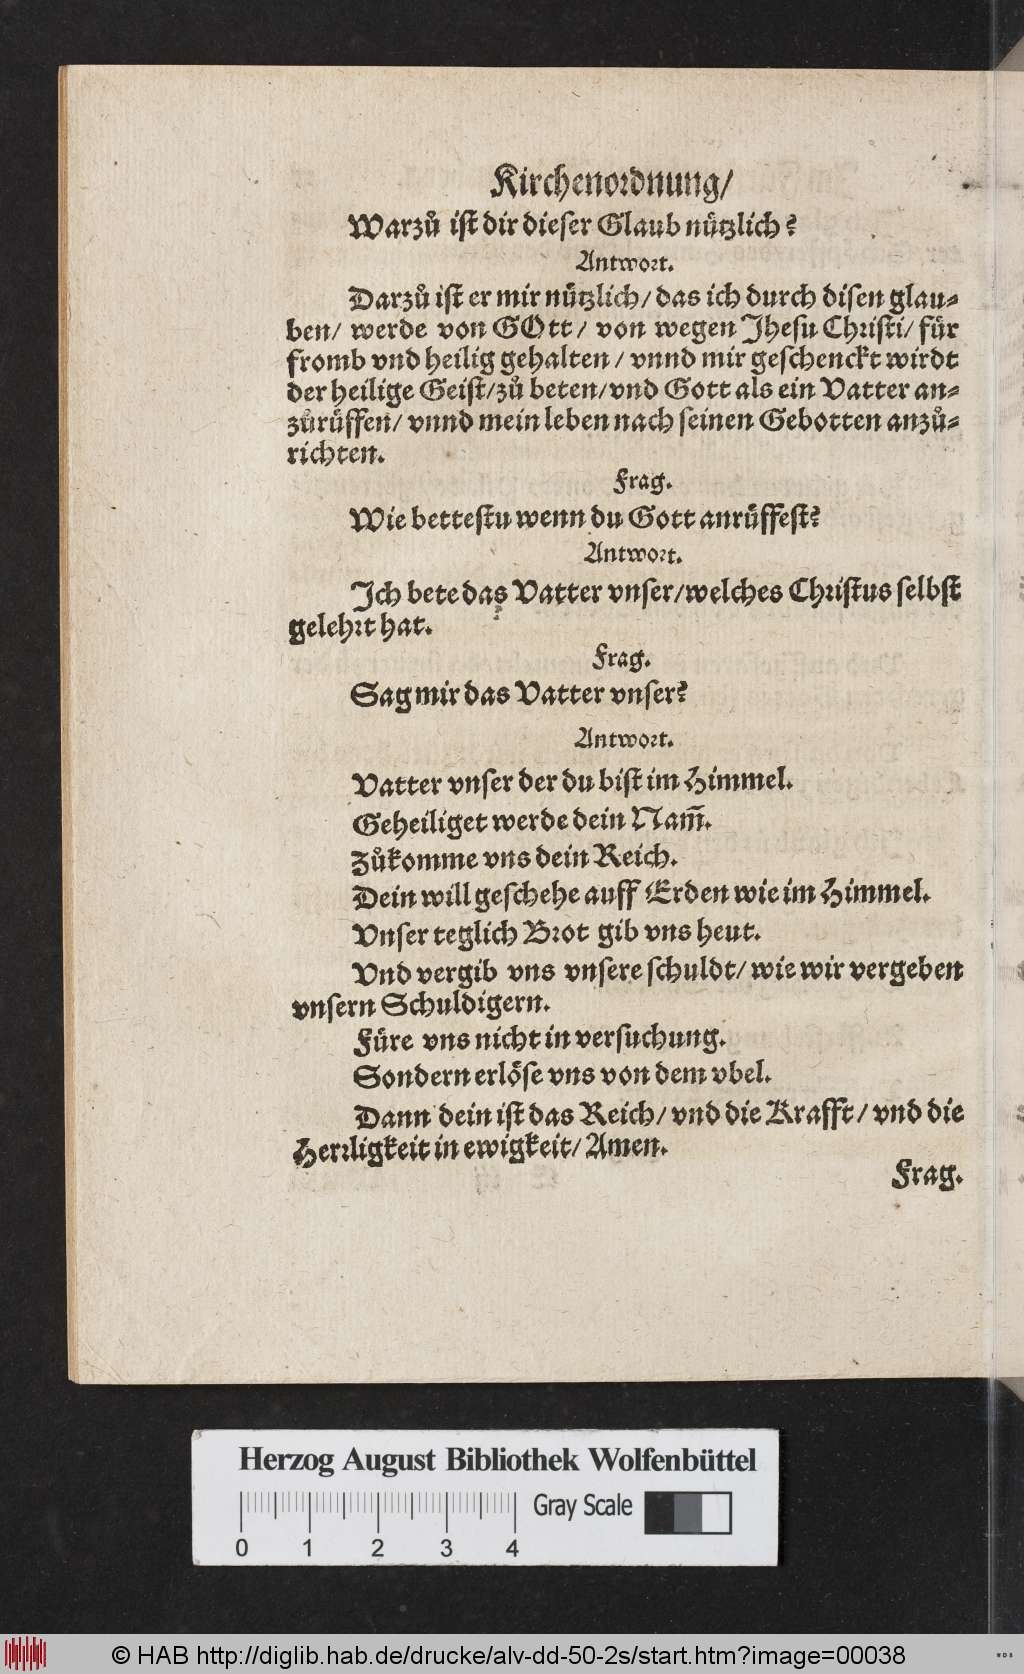 Kirchenordnung/
Warzů ist dir dieser Glaub nützlich?
Antwort.
Darzů ist er mir nützlich/ das ich durch disen glau-
ben/ werde von GOtt/ von wegen Jhesu Christi/ für
fromb vnd heilig gehalten/ vnnd mir geschenckt wirdt
der heilige Geist/ zů beten/ vnd Gott als ein Vatter an-
zůrüffen/ vnnd mein leben nach seinen Gebotten anzů-
richten.
Frag.
Wie bettestu wenn du Gott anrüffest?
Antwort.
Ich bete das Vatter vnser/ welches Christus selbst
gelehrt hat.
Frag.
Sag mir das Vatter vnser?
Antwort.
Vatter vnser der du bist im Himmel.
Geheiliget werde dein Nam̃.
Zůkomme vns dein Reich.
Dein will geschehe auff Erden wie im Himmel.
Vnser teglich Brot gib vns heut.
Vnd vergib vns vnsere schuldt/ wie wir vergeben
vnsern Schuldigern.
Füre vns nicht in versuchung.
Sondern erlöse vns von dem vbel.
Dann dein ist das Reich/ vnd die Krafft/ vnd die
Herrligkeit in ewigkeit/ Amen.
Frag.
Herzog August Bibliothek Wolfenbüttel
Gray Scale
0 1 2 3 4
© HAB http://diglib.hab.de/drucke/alv-dd-50-2s/start.htm?image=00038